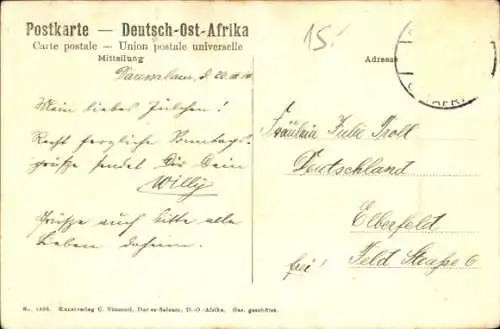 Postkarte — Deutsch-Ost-Afrika
Carte postale — Union postale universelle
Mitteilung
Daressalam, d. 20. III
Mein liebes Julchen!
Recht herzliche Sonntags-
grüße sendet Dir Dein
Willy
Grüße auch bitte alle
Lieben daheim.
15.
Adresse
Fräulein Julie Troll
Deutschland
Elberfeld
frei! Feld Straße 6
No. 1898. Kunstverlag C. Vincenti, Dar-es-Salaam, D.-O.-Afrika. Ges. geschützt.